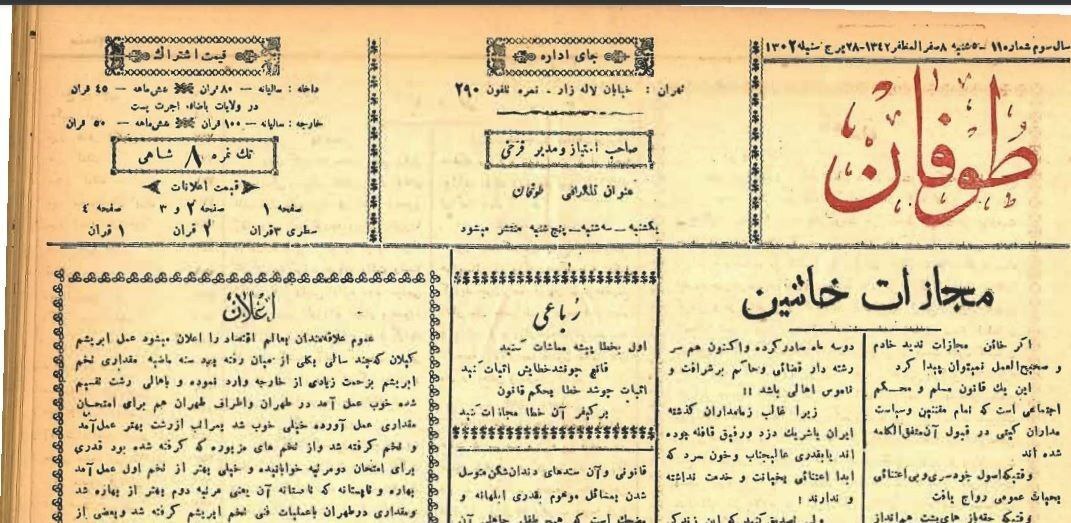 سال سوم شماره ۱۱ ـ ۵شنبه ۸ صفر المظفر ۱۳۴۲ـ۲۸ برج سنبله ۱۳۰۲
طوفان
جای اداره
تهران : خیابان لاله زار ـ نمره تلفون ۲۹۰
صاحب امتیاز و مدیر فرخی
عنوان تلگرافی طوفان
یکشنبه ـ سه‌شنبه ـ پنج‌شنبه منتشر میشود
قیمت اشتراك
داخله : سالیانه — ۸۰ قران شش‌ماهه — ۴۵ قران
در ولایات باضافه اجرت پست
خارجه : سالیانه — ۱۰۰ قران شش‌ماهه — ۵۰ قران
تك نمره ۸ شاهی
قیمت اعلانات
صفحه ۱ صفحه ۲ و ۳ صفحه ۴
سطری ۳قران ۲ قران ۱ قران
مجازات خائنین
اگر خائن مجازات ندید خادم
و صحیح‌العمل نمیتوان پیدا کرد
این یك قانون مسلم و محکم
اجتماعی است که تمام مقننین وسیاست
مداران گیتی در قبول آن متفق‌الکلمه
شده اند
وقتیکه اصول خودسری وبی اعتنائی
بحیات عمومی رواج یافت
وقتیکه حقه‌باز های پشت هم‌انداز
دوسه ماه صادر کرده واکنون هم سر
رشته دار قضائی وحاکم برشرافت و
ناموس اهالی باشد !!
زیرا غالب زمامداران گذشته
ایران یاشریك دزد ورفیق قافله بوده
اند یابقدری عالیجناب وخون سرد که
ابدا اعتنائی بخیانت و خدمت نداشته
و ندارند !
ولی تصدیق کنید که این زندگی
رباعی
اول بخطا پیشه مماشات کنید
قانع چو نشد خطایش اثبات کنید
اثبات چو شد خطا بحکم قانون
بر کیفر آن خطا مجازات کنید
قانونی وآن سندهای دندان‌شکن متوسل
شدن بمسائل موهوم بقدری ابلهانه و
مضحك است که هیچ طفل جاهلی آن
اعلان
عموم علاقمندان بعالم اقتصاد را اعلان میشود عمل ابریشم
گیلان که چند سالی بکلی از میان رفته بود سنه ماضیه مقداری تخم
ابریشم بزحمت زیادی از خارجه وارد نموده و باهالی رشت تقسیم
شده خوب عمل آمد در طهران واطراف طهران هم برای امتحان
مقداری عمل آورده خیلی خوب شد بمراتب ازرشت بهتر عمل‌آمد
و تخم گرفته شد واز تخم های مزبوره که گرفته شده بود قدری
برای امتحان دومرتبه خوابانیده و خیلی بهتر از تخم اول عمل آمد
بهاره و تابستانه که تابستانه آن یعنی مرتبه دوم بهتر از بهاره شد
ومقداری درطهران باعملیات فنی تخم ابریشم گرفته شد وبعضی از